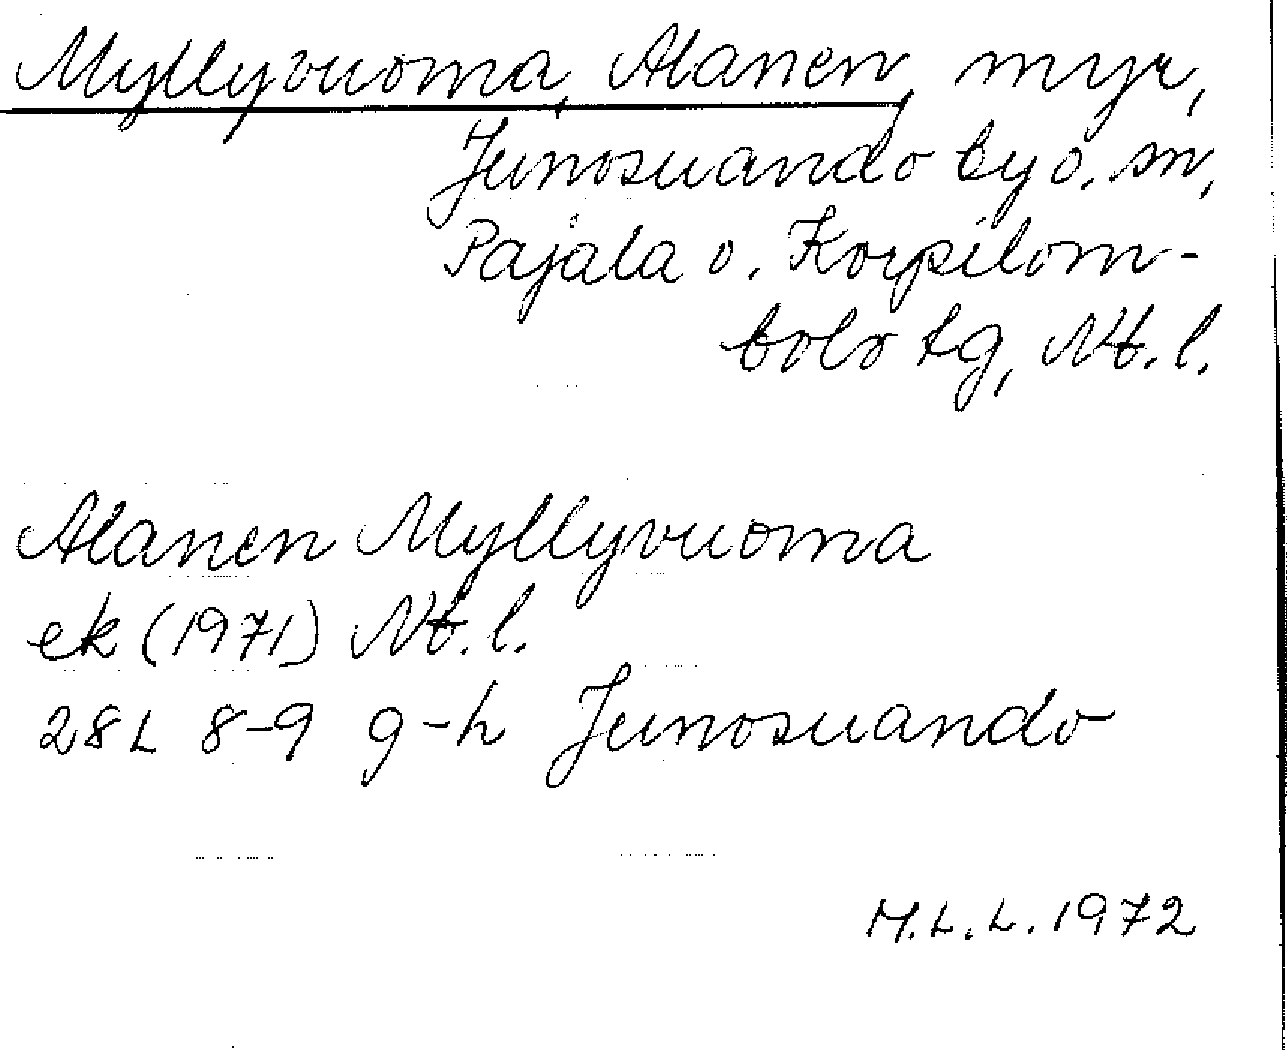 Myllyvuoma, Alanen, myr,
Junosuando by o. sn,
Pajala o. Korpilom-
bolo tg, Nb. l.
Alanen Myllyvuoma
ek (1971) Nb. l.
28L 8-9 g-h Junosuando
M.L.L. 1972